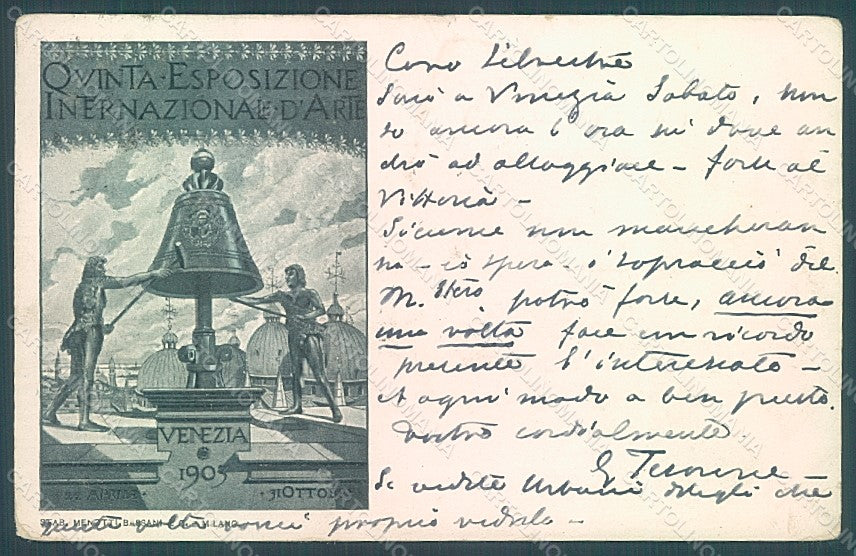 QVINTA·ESPOSIZIONE
INTERNAZIONALE D'ARTE
VENEZIA
1905
22 APRILE
31 OTTOBRE
STAB. MENOTTI BASSANI & C. MILANO
Caro Silvestro
Sarò a Venezia Sabato, non
so ancora l'ora nè dove an
drò ad alloggiare – forse al
Vittoria –
Siccome non mancheran
no – io spero – i sopracciò del
M.stero potrò forse, ancora
una volta fare un ricordo
presente l'interessato –
A ogni modo a ben presto.
Vostro cordialmente
G Tesorone
Se vedete Urbani ditegli che
questa volta vorrei proprio vederlo –
CARTOLINOMANIA